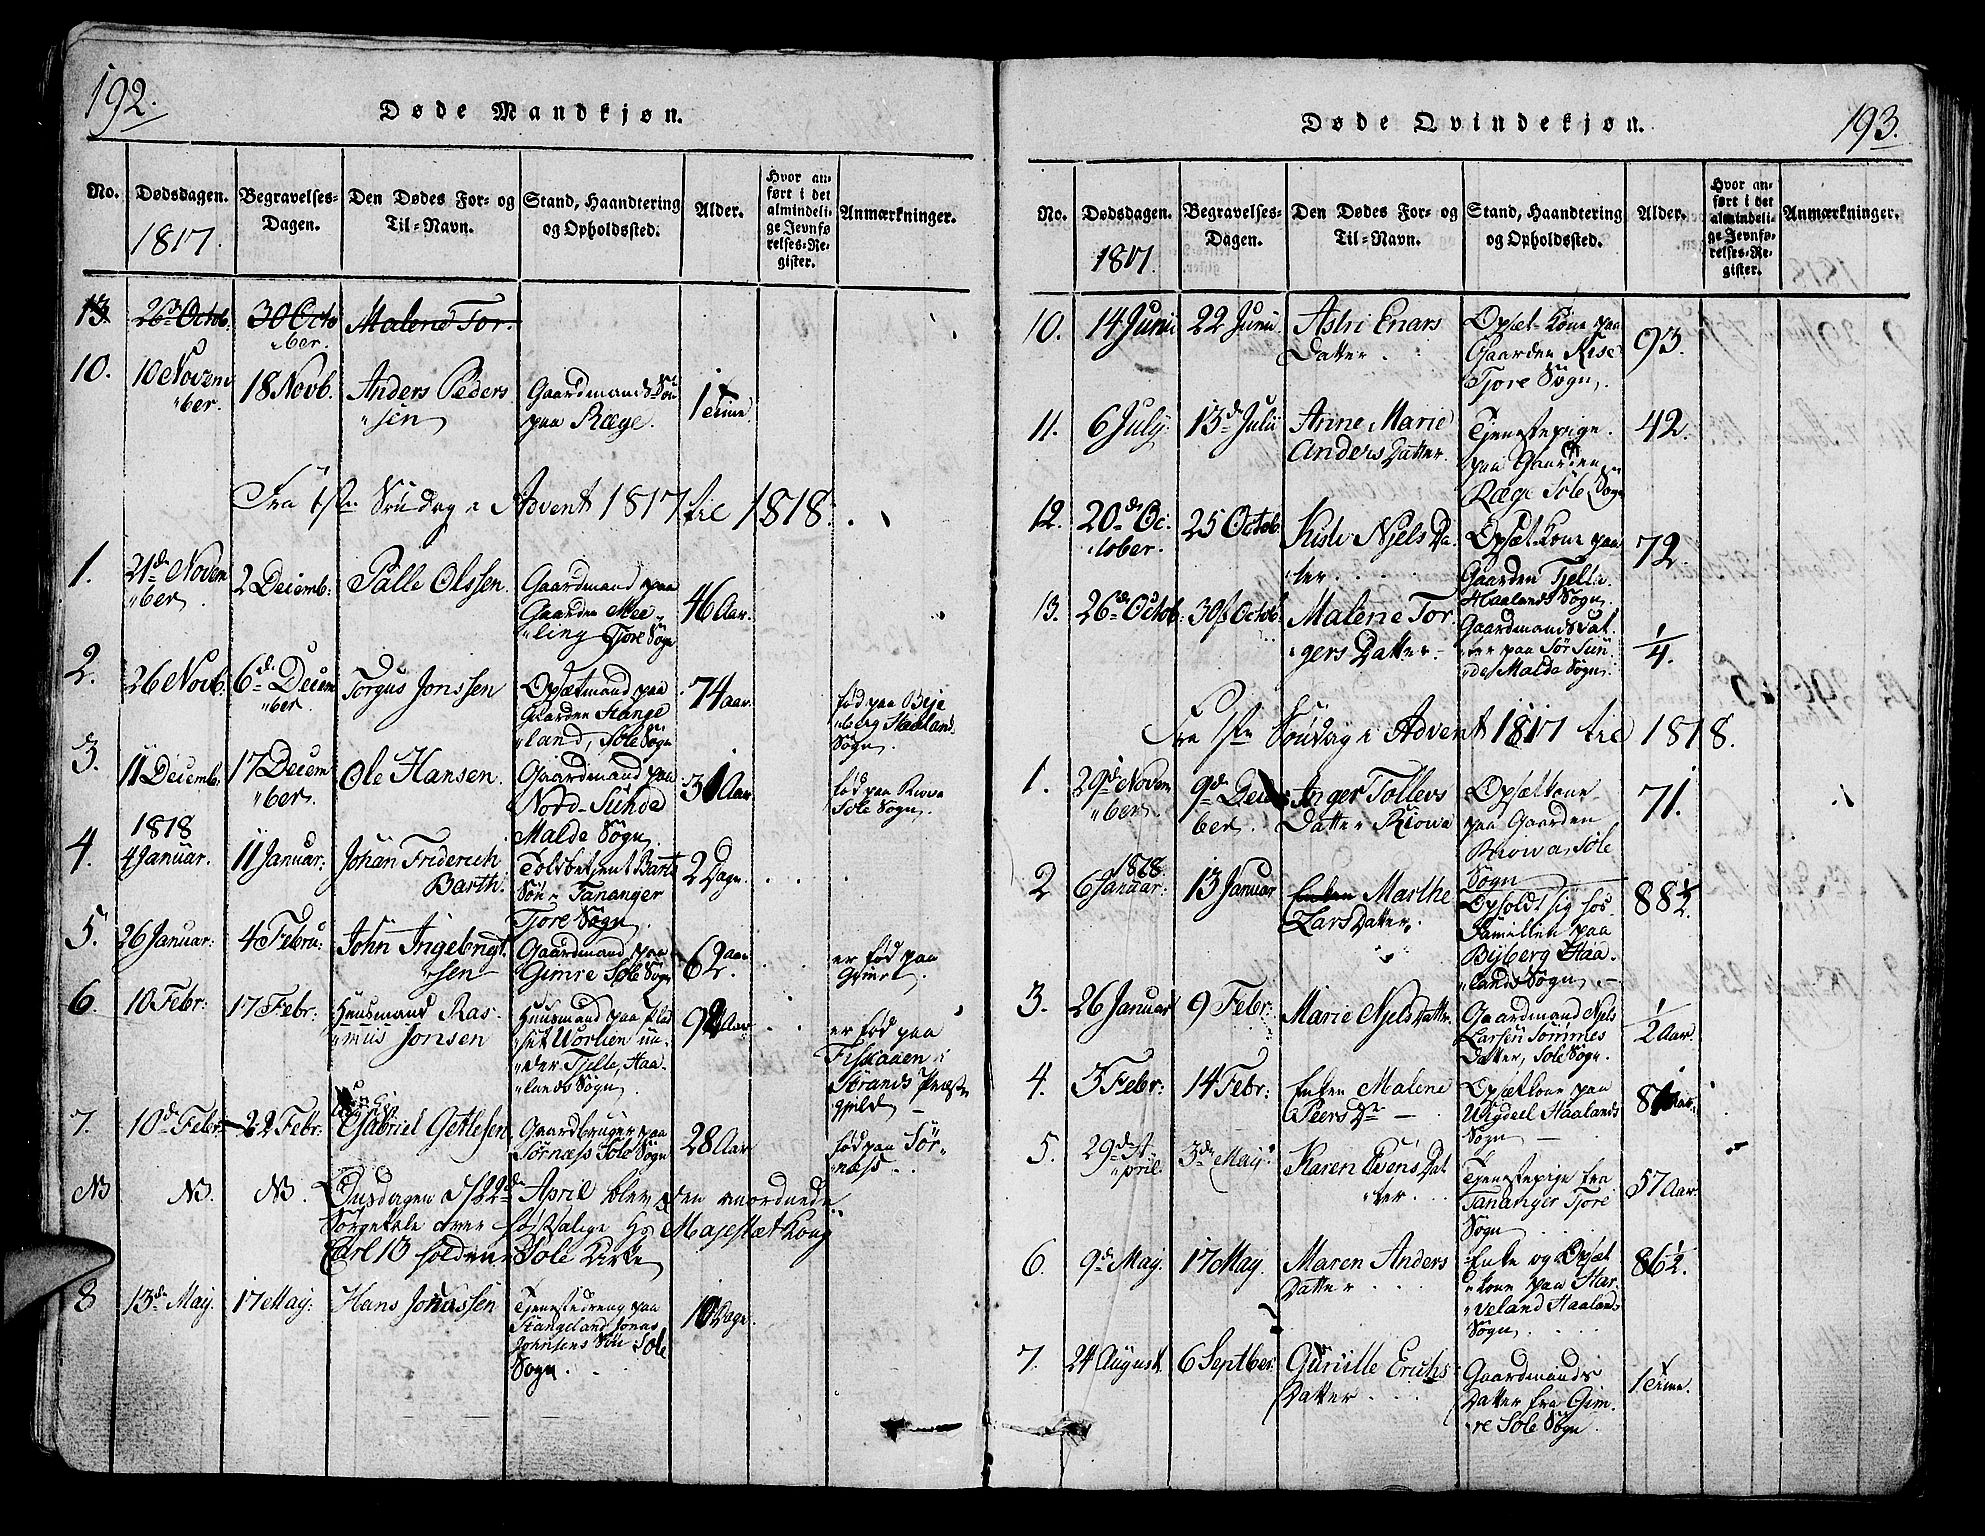 192.
Døde Mandkjøn.
No.
Dødsdagen.
1817.
Begravelses-
Dagen.
Den Dødes For- og
Til-Navn.
Stand, Haandtering
og Opholdssted.
Alder.
Hvor an-
ført i det
almindeli-
ge Jevnfø-
relses-Re-
gister.
Anmærkninger.
13 26 Octob. 30 Octo
ber.
Malene Tor.
10. 10 Novem
"ber.
18 Novb.
Anders Peders
"sen
Gaardmands Søn
paa Ræge.
1 Time
Fra 1ste Søndag i Advent 1817 til 1818.
1. 21de Novem
"ber
2 Decemb:
Palle Olssen
Gaardmand paa
Gaarden Mee-
"ling Tjore Sogn
46 Aar.
2. 26 Novb.
6de Decem
"ber.
Torgus Jonssen
Opsætmand paa
Gaarden Stange
"land, Sole Sogn
74 Aar.
fød paa
Haalands
Sogn.
3. 11 Decemb.
17 Decem
"ber.
Ole Hansen.
Gaardmand paa
Nord-Sunde
Malde Sogn.
31 Aar
fød paa
Sole Sogn.
1818
4. 4 Januar.
11 Januar.
Johan Friderich
Barth.
Toldbetjent Barts
Søn Tananger
Tjore Sogn
2 Dage.
5. 26 Januar:
4 Febru:
John Ingebrigt
"sen
Gaardmand paa
Gimre Sole Sogn
62 Aar.
er fød paa
6. 10 Febr:
17 Febr:
Huusmand Ras-
"mus Jonsen
Huusmand paa Plad
"set Worlien un-
"der Tjelle, Haa-
"lands Sogn
92 Aar
er fød paa
Fiskaaen i
Strands Præste
gjeld
7. 10de Febr
22 Febr:
Gabriel Getlesen
Gaardbruger paa
Sørnæss Sole Sogn
28 Aar
fød paa Sør-
"næss.
NB NB. NB.
Onsdagen d. 22de April blev den anordnede
Sørgetale over høistsalige Hs Majestæt Kong
Carl 13 holden i Sole Kirke
8 13de May.
17 May:
Hans Jonassen
Tjenestedreng paa
Stangeland Jonas
Johnsens Søn Sole
Sogn.
10 Dage
193.
Døde Qvindekjøn.
No.
Dødsdagen.
1817.
Begravelses-
Dagen.
Den Dødes For- og
Til-Navn.
Stand, Haandtering
og Opholdssted.
Alder.
Hvor an-
ført i det
almindeli-
ge Jevnfø-
relses-Re-
gister.
Anmærkninger.
10. 14 Junii
22 Junii
Astri Enars
Datter
Opsæt-Kone paa
Gaarden Risc
Tjore Sogn.
93.
11. 6 July.
13de Julii
Anne Marie
Anders Datter.
Tjenestepige
paa Gaarden
Ræge Sole Sogn
42.
12. 20de Oc.
"tober.
25 Octob.
Kisti Njels Da
"ter
Opsæt-Kone paa
Gaarden Tjelle
Haalands Sogn.
72.
13. 26de Octob.
30te Octob.
Malene Tor.
"gers Datter
Gaardmands Dat.
"ter paa Sør Sun
"de Malde Sogn.
1/4.
Fra 1ste Søndag i Advent 1817 til 1818.
1. 29de Novem
"ber
9de Decem
ber.
Inger Tollevs
Datter
Opsætkone
paa Gaarden
Sole
Sogn
71.
1818.
2 6 Januar:
13 Januar
Enken Marthe
Lars Datter.
Opholdt sig hos
Familien paa
Byberg Haa-
"lands Sogn.
88½.
3. 26 Januar
9 Febr:
Marie Njels Datter.
Gaardmand Njels
Larsen Sømmes
Datter, Sole Sogn.
1/2 Aar.
4. 3 Febr:
14 Febr:
Enken Malene
Peers Dr
Opsætkone paa
Wigdeil Haalands
Sogn
81 Aar.
5. 29de A
"pril.
3de May.
Karen Evens Dat
"ter
Tjenestepige fra
Tananger Tjore
Sogn
57 Aar.
6. 9de May.
17 May.
Maren Anders
Datter
Enke og Opsæt
"kone paa Har
"veland Haaland
Sogn
86½.
7. 24 August.
6 Septber:
Gurulle Erichs
Datter
Gaardmands
Datter fra Gim.
"re Sole Sogn
1 Time.